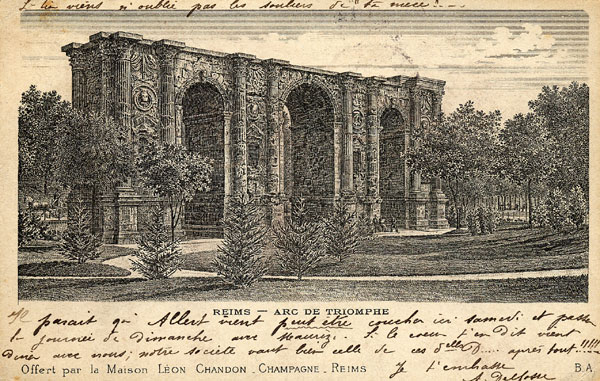 Si tu viens n'oublie pas les souliers de ta mère!!....
REIMS — ARC DE TRIOMPHE
parait qu' Albert vient peut être coucher ici samedi et passer
la journée de Dimanche avec Maurice. Si le coeur t'en Dit vient
Diner avec nous; notre société vaut bien celle de ces d'elles D.... après tout!!!!!
Je t'embrasse
Offert par la Maison LÉON CHANDON _ CHAMPAGNE _ REIMS
B.A.